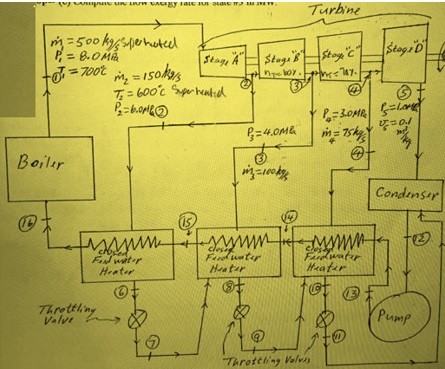 (c) Compute the flow exergy rate for state #3 in MW.
Turbine
ṁ₁ = 500 kg/s Superheated
P₁ = 8.0 MPa
T₁ = 700°C
①
ṁ₂ = 150 kg/s
T₂ = 600°C Superheated
P₂ = 6.0 MPa
②
Stage "A"
Stage "B"
Stage "C"
Stage "D"
②
③
④
⑤
P₃ = 4.0 MPa
③
ṁ₃ = 100 kg/s
P₄ = 3.0 MPa
ṁ₄ = 75 kg/s
④
Boiler
Condenser
⑯
⑮
⑭
⑫
Closed
Feedwater
Heater
Closed
Feedwater
Heater
Closed
Feedwater
Heater
⑥
⑧
⑩
⑬
Pump
Throttling
Valve
⑦
⑨
⑪
Throttling Valves